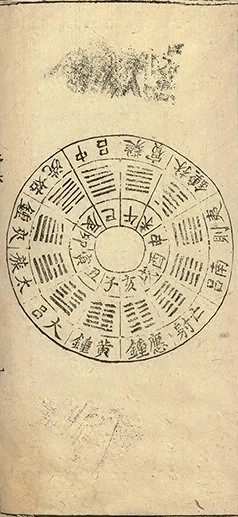 黃鐘
大呂
太族
夾鐘
姑洗
中呂
蕤賓
林鐘
夷則
南呂
亡射
應鐘
子
丑
寅
卯
辰
巳
午
未
申
酉
戌
亥